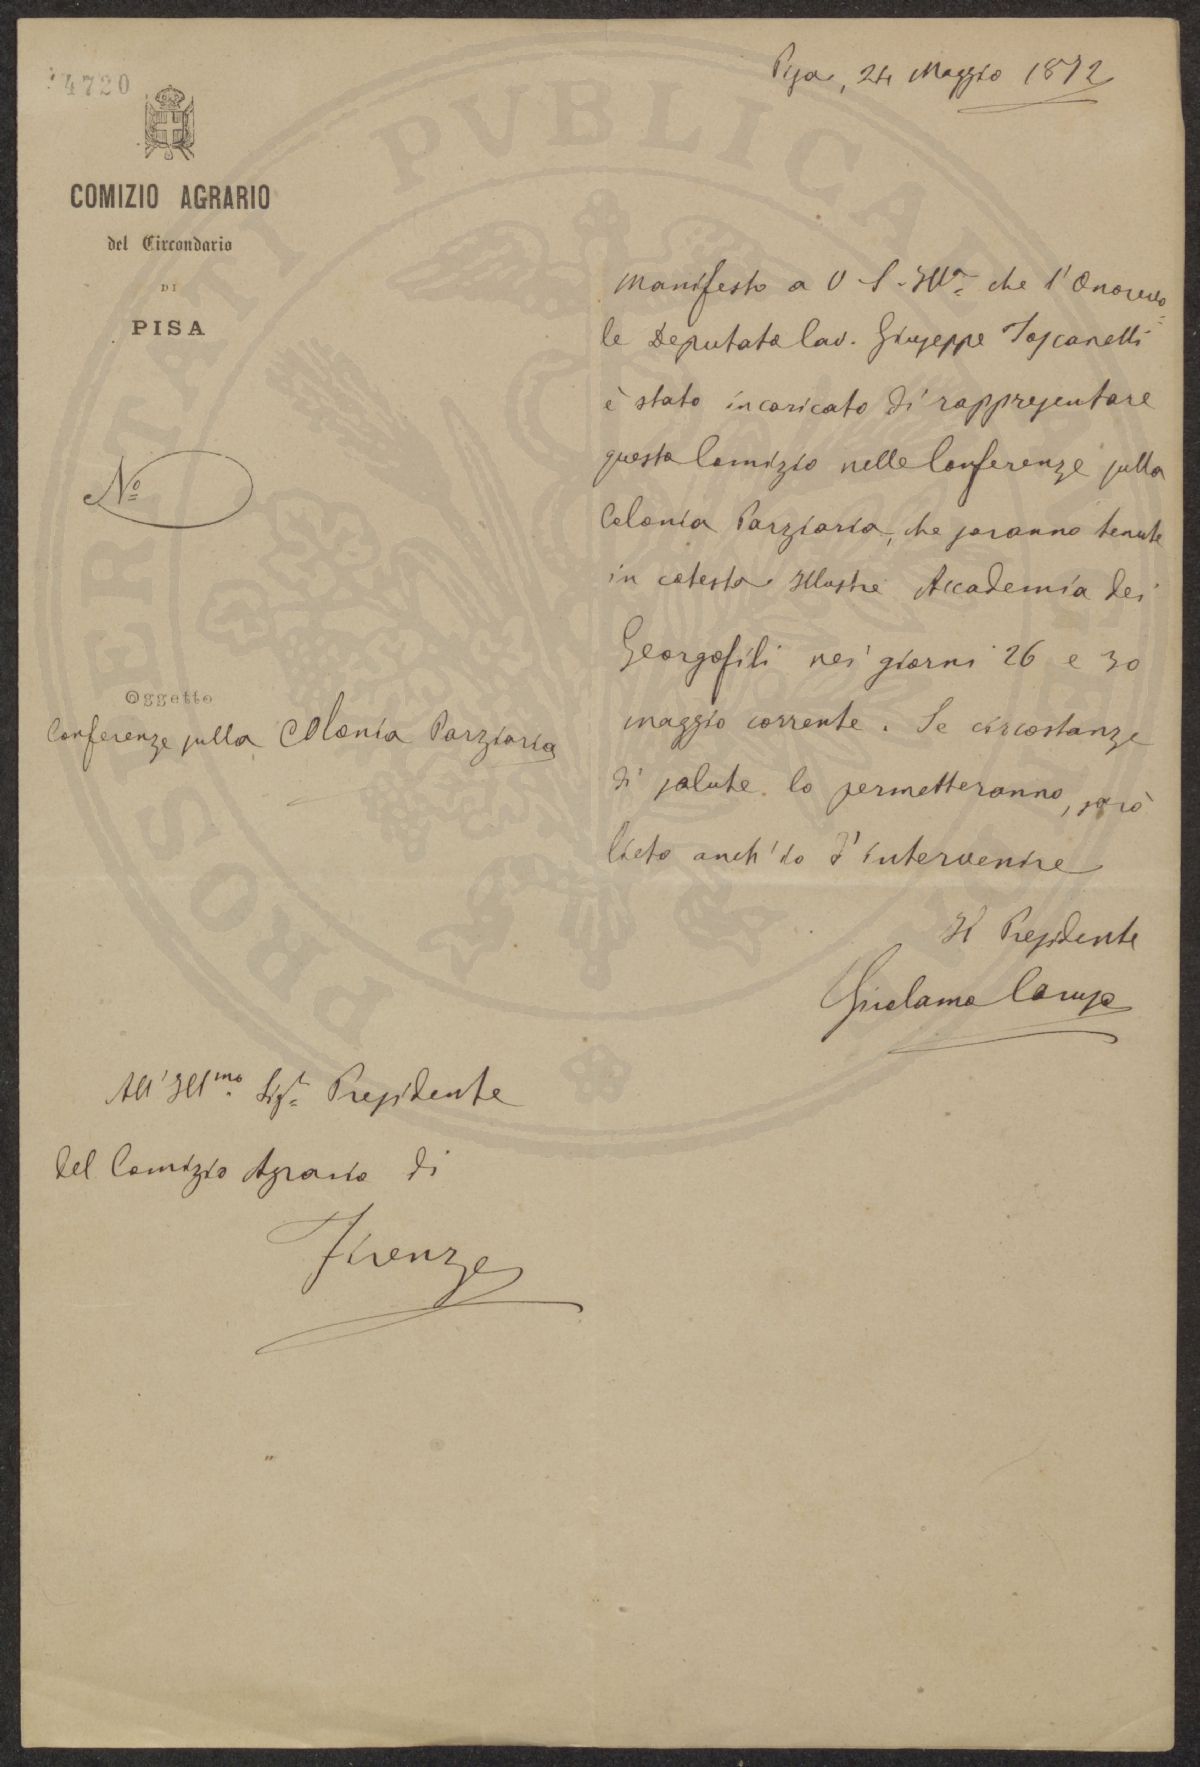 4720
COMIZIO AGRARIO
del Circondario
DI
PISA
Nº
Oggetto
Conferenze sulla Colonia Parziaria
Pisa, 24 Maggio 1872
Manifesto a V. S. Illª che l'Onorevo=
le Deputato Cav. Giuseppe Toscanelli
è stato incaricato di rappresentare
questo Comizio nelle Conferenze sulla
Colonia Parziaria, che saranno tenute
in cotesta Illustre Accademia dei
Georgofili nei giorni 26 e 30
maggio corrente. Se circostanze
di salute lo permetteranno, sarò
lieto anch'io d'intervenire
Il Presidente
Girolamo Caruso
All'Illmo. Sigr. Presidente
del Comizio Agrario di
Firenze
PROSPERITATI PVBLICAE